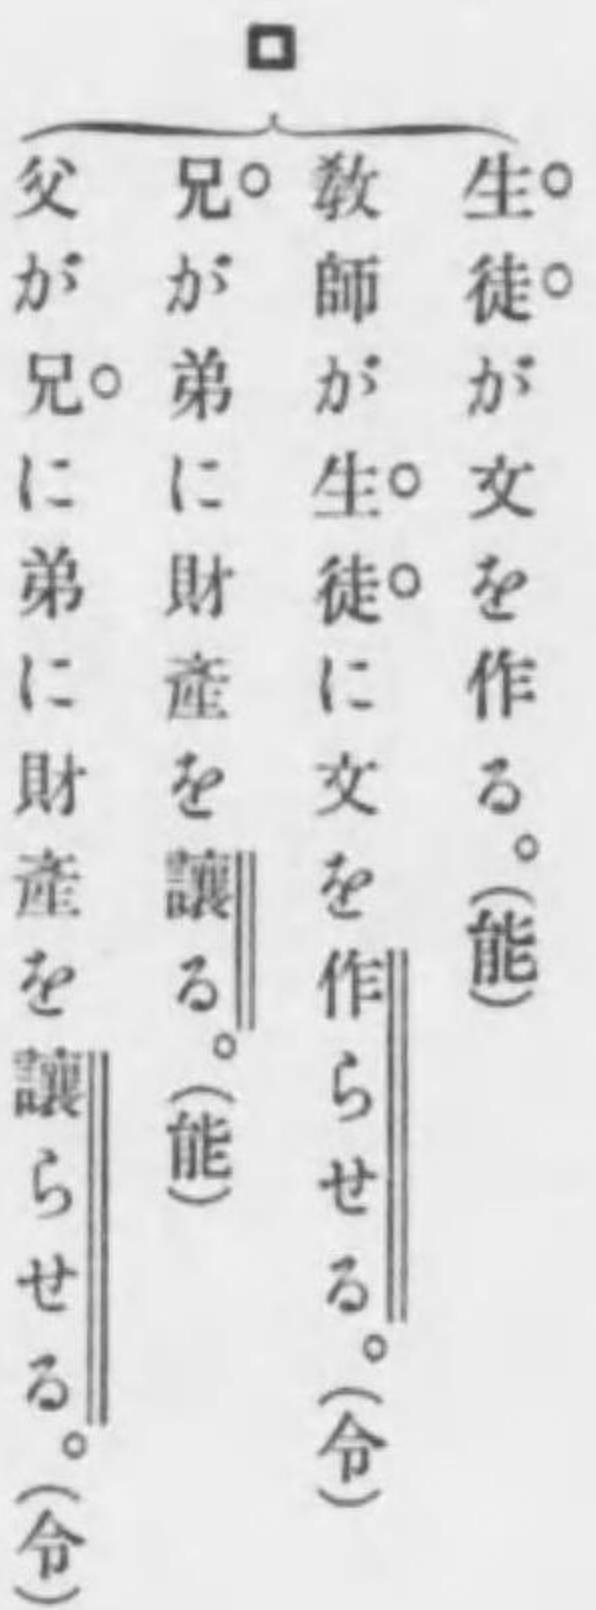 ロ
生徒が文を作る。(能)
敎師が生徒に文を作らせる。(令)
兄が弟に財産を讓る。(能)
父が兄に弟に財産を讓らせる。(令)